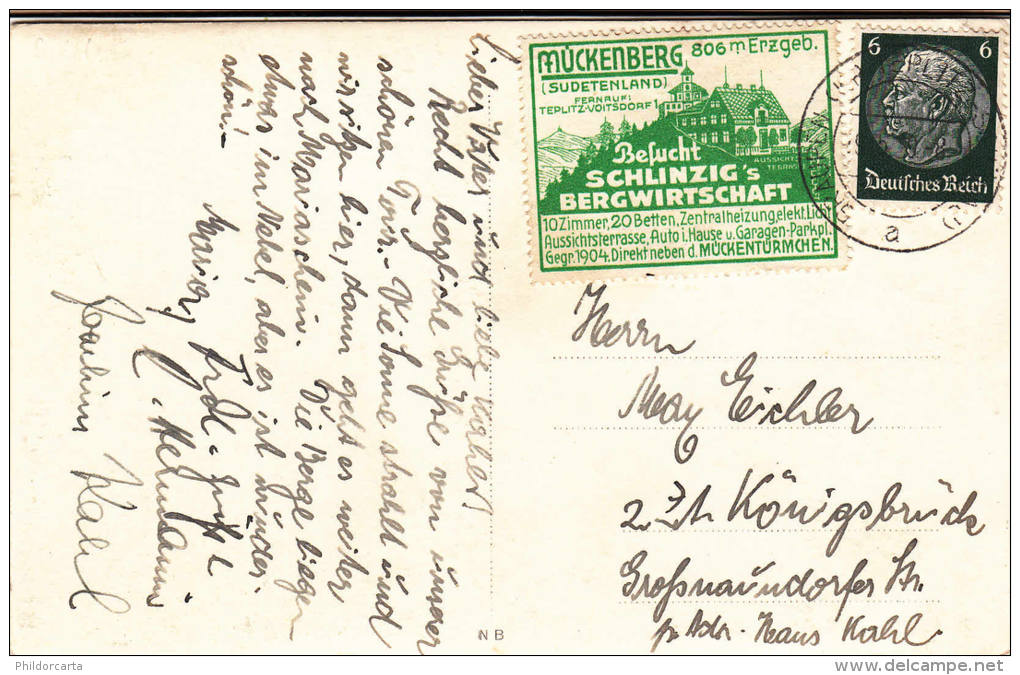 MÜCKENBERG 806 m Erzgeb.
(SUDETENLAND)
FERNRUF:
TEPLITZ-VOITSDORF 1
AUSSICHTS
TERRASSE
Besucht
SCHLINZIG's
BERGWIRTSCHAFT
10 Zimmer, 20 Betten, Zentralheizung, elekt. Lich
Aussichtsterrasse, Auto i. Hause u. Garagen-Parkpl.
Gegr. 1904. Direkt neben d. MÜCKENTÜRMCHEN.
6 6
Deutsches Reich
a
Lieber Vater und liebe
Recht herzliche Grüße von unserer
schönen Tour. Die Sonne strahlt und
wir sitzen hier, dann geht es weiter
nach Mariaschein. Die Berge liegen
etwas im Nebel, aber es ist wunder-
schön!
Marion
Kahl
Herrn
Max Eichler
z. Zt. Königsbrück
Großnaundorfer Str.
p. Adr. Hans Kahl.
N B
Phildorcarta
www.delcampe.net